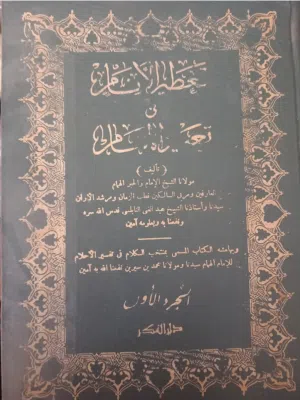 تعطير الأنام
في
تعبير المنام
( تأليف )
مولانا الشيخ الإمام والحبر الهمام
العارفين ومربى السالكين قطب الزمان ومرشد الأوان
سيدنا وأستاذنا الشيخ عبد الغنى النابلسى قدس الله سره
ونفعنا به وبعلومه آمين
وبهامشه الكتاب المسمى بمنتخب الكلام فى تفسير الأحلام
للإمام الهمام سيدنا ومولانا محمد بن سيرين نفعنا الله به آمين
الجزء الأول
دار الفكر